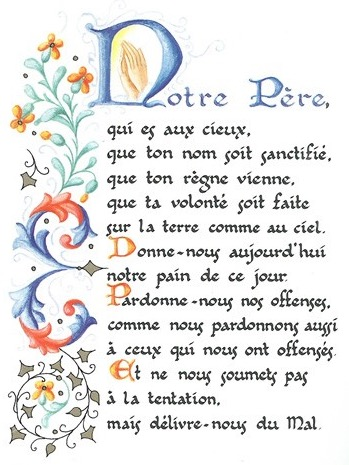 Notre Père,
qui es aux cieux,
que ton nom soit sanctifié,
que ton règne vienne,
que ta volonté soit faite
sur la terre comme au ciel.
Donne-nous aujourd'hui
notre pain de ce jour.
Pardonne-nous nos offenses,
comme nous pardonnons aussi
à ceux qui nous ont offensés.
Et ne nous soumets pas
à la tentation,
mais délivre-nous du Mal.